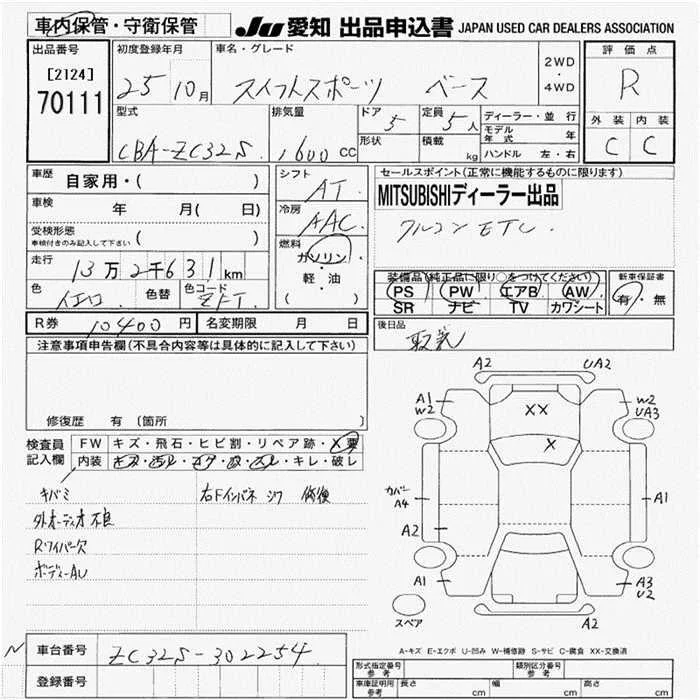 車内保管・守衛保管
JU 愛知 出品申込書 JAPAN USED CAR DEALERS ASSOCIATION
出品番号
[2124]
70111
初度登録年月
25 10月
車名・グレード
スイフトスポーツ ベース
2WD
・
4WD
評価点
R
外装 内装
C C
型式
CBA-ZC32S.
排気量
1600 CC
ドア 5
形状
定員 5人
積載 kg
ディーラー・並行
モデル年式 年
ハンドル 左・右
車歴 自家用・( )
車検 年 月( 日)
受検形態
車検付きのみ記入して下さい ( )
走行 13万2千631km
色 色替 色コード ZFT
R券 10400円 名変期限 月 日
シフト AT.
冷房 AAC
燃料
ガソリン
・
軽・油
( )
セールスポイント(正常に機能するものに限ります)
MITSUBISHIディーラー出品
アルコン ETC.
装備品(純正品に限り○をつけてください)
PS PW エアB AW
SR ナビ TV カワシート
新車保証書
有・無
後日品
取説
注意事項申告欄(不具合内容等は具体的に記入して下さい)
修復歴 有 〔箇所 〕
検査員記入欄
FW キズ・飛石・ヒビ割・リペア跡・X要
内装 キズ・汚レ・コゲ・穴・スレ・キレ・破レ
キバミ
外オーディオ不良
Rワイパー欠
ボディーAU
右Fインパネ シワ 修復
A2 UA2
A1 W2
W2 UA3
XX
X
カバー A4
A1
A2
A1
A3 U2
スペア
N 車台番号 ZC32S-302254
登録番号
A-キズ E-エクボ U-凹み W-補修跡 S-サビ C-腐食 XX-交換済
形式指定番号 参考
類別区分番号 参考
車庫証明用 参考 長さ cm 幅 cm 高さ cm